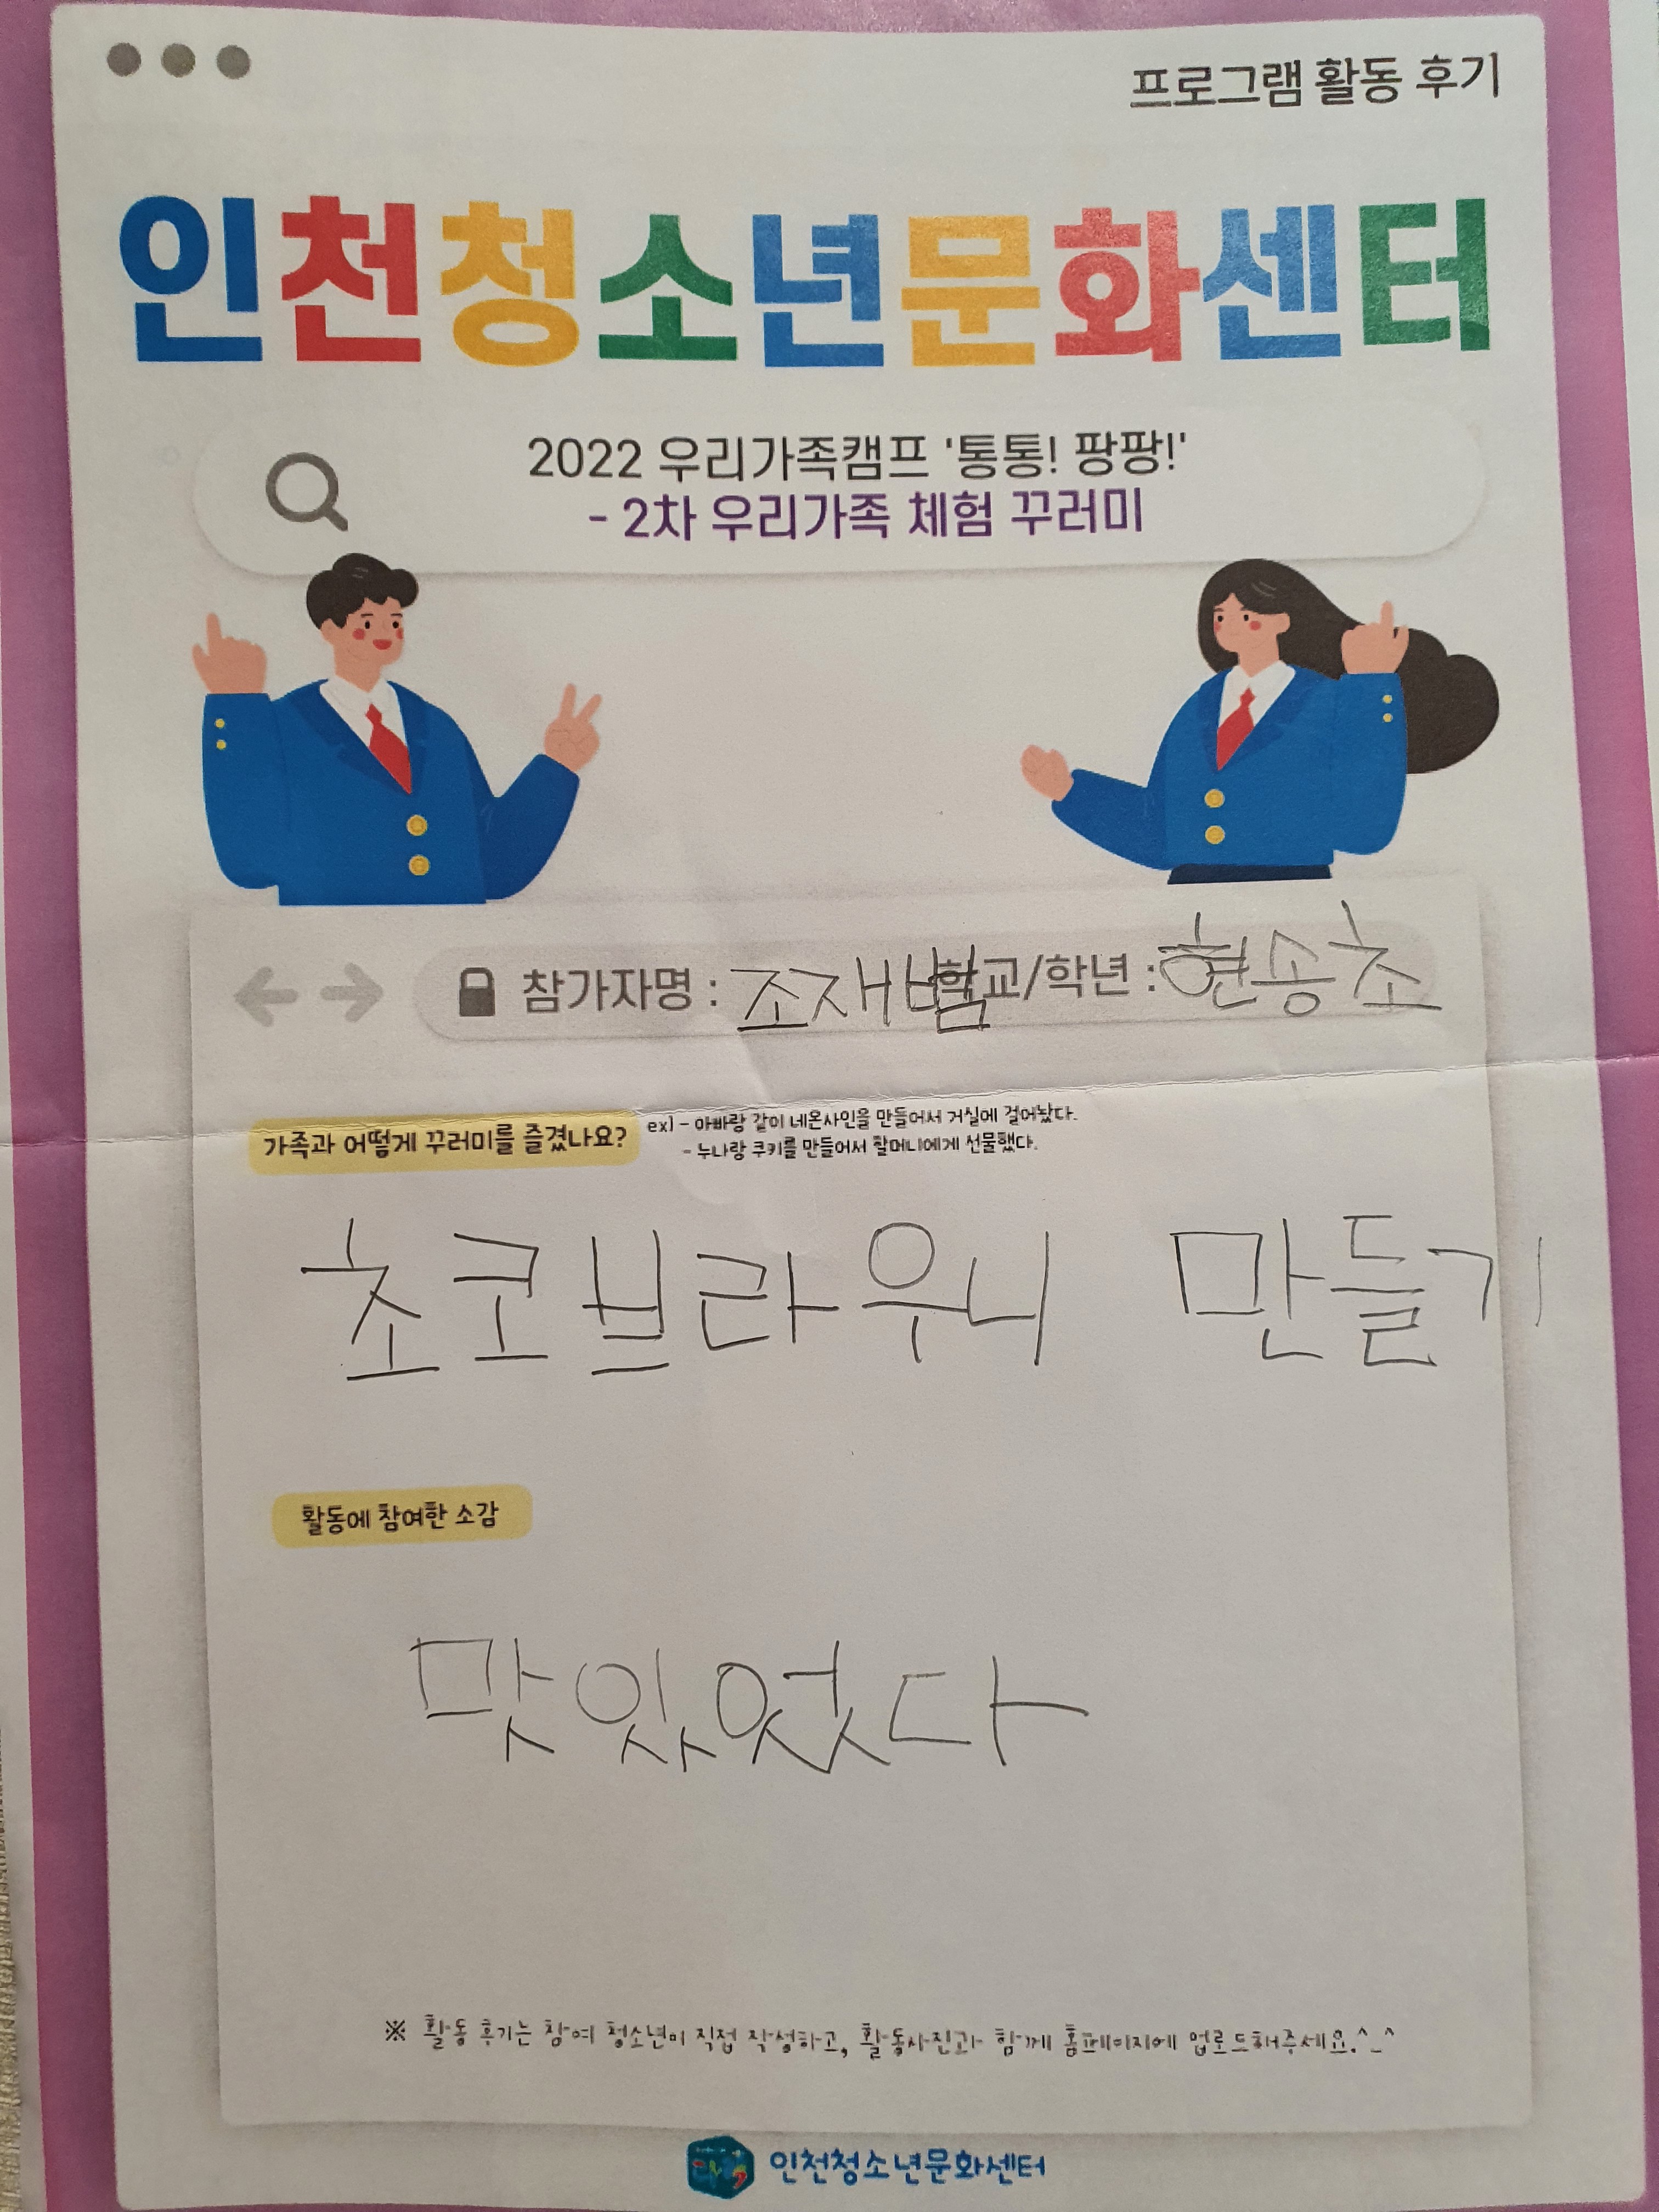 프로그램 활동 후기
인천청소년문화센터
2022 우리가족캠프 '통통! 팡팡!'
- 2차 우리가족 체험 꾸러미
참가자명 : 조재범 학교/학년 : 현송초
가족과 어떻게 꾸러미를 즐겼나요? ex) - 아빠랑 같이 네온사인을 만들어서 거실에 걸어놨다.
- 누나랑 쿠키를 만들어서 할머니에게 선물했다.
초코브라우니 만들기
활동에 참여한 소감
맛있었다
※ 활동 후기는 참여 청소년이 직접 작성하고, 활동사진과 함께 홈페이지에 업로드해주세요.^_^
인천청소년문화센터